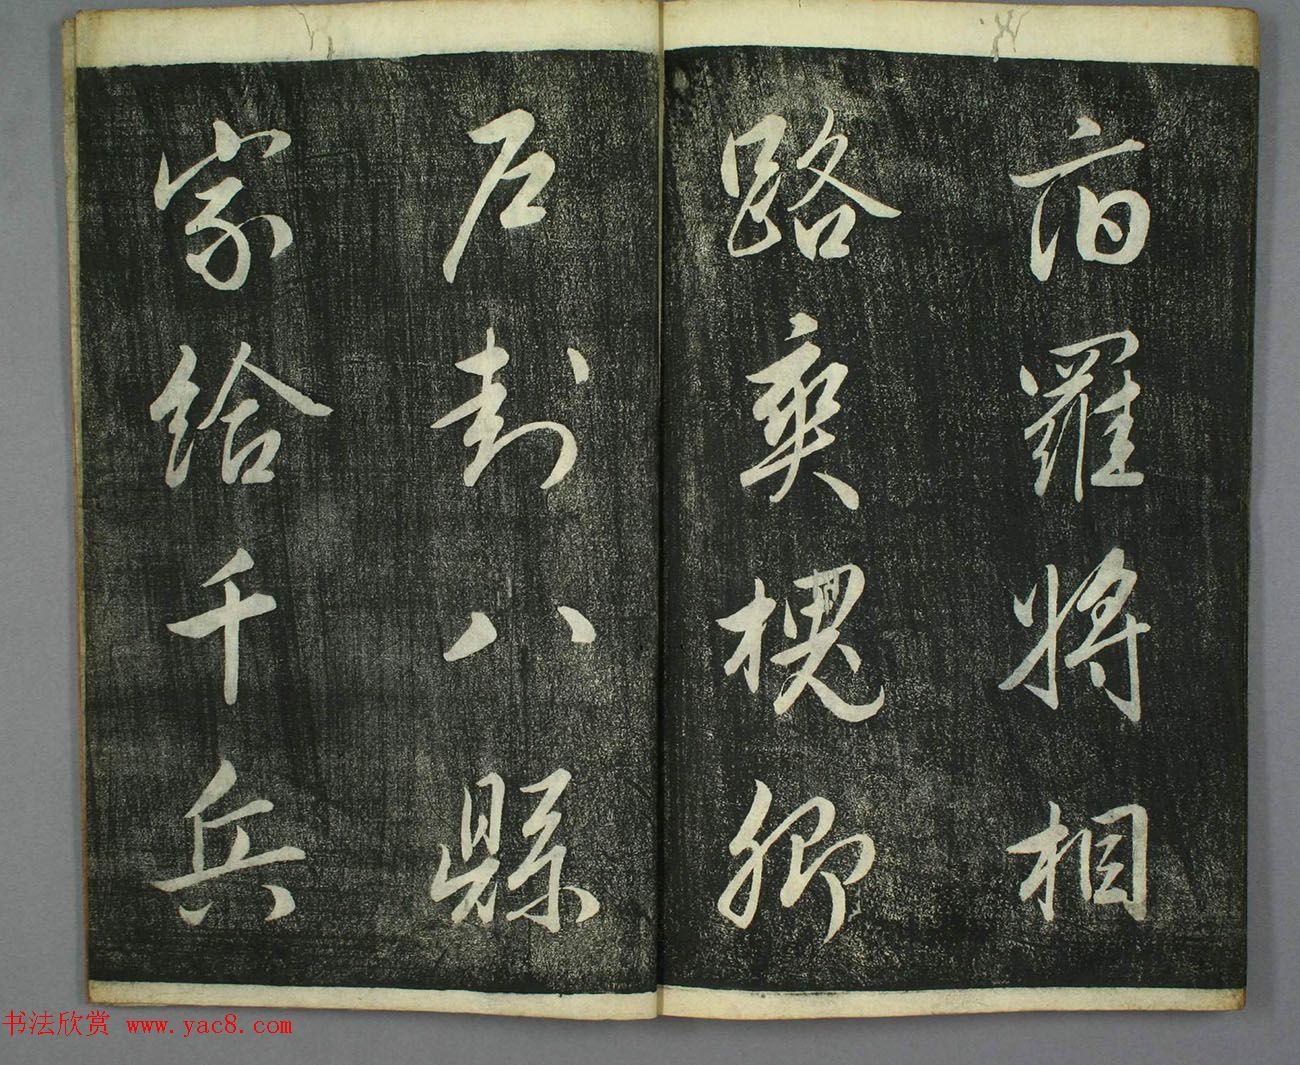 府羅將相
路夾槐卿
戶封八縣
家給千兵
书法欣赏 www.yac8.com